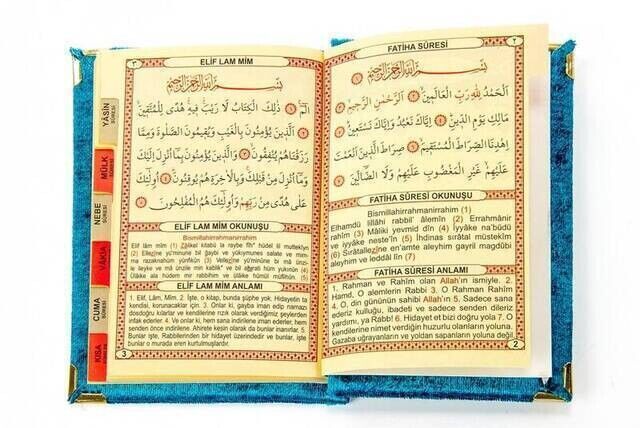 FATİHA SÛRESİ ٢
بِسْمِ اللهِ الرَّحْمٰنِ الرَّحِيمِ
اَلْحَمْدُ لِلّٰهِ رَبِّ الْعَالَمِينَ اَلرَّحْمٰنِ الرَّحِيمِ
مَالِكِ يَوْمِ الدِّينِ اِيَّاكَ نَعْبُدُ وَاِيَّاكَ نَسْتَعِينُ
اِهْدِنَا الصِّرَاطَ الْمُسْتَقِيمَ صِرَاطَ الَّذِينَ اَنْعَمْتَ
عَلَيْهِمْ غَيْرِ الْمَغْضُوبِ عَلَيْهِمْ وَلَا الضَّالِّينَ
FATİHA SÛRESİ OKUNUŞU
Bismillahirrahmanirrahim (1)
Elhamdü lillâhi rabbil' âlemîn (2) Errahmânir
rahîm (3) Mâliki yevmid dîn (4) Iyyâke na'büdü
ve iyyâke neste'în (5) İhdinas sırâtal müstekîm
(6) Sırâtallezîne en'amte aleyhim gayril magdûbi
aleyhim ve leddâl lîn (7)
FATİHA SÛRESİ ANLAMI
1. Rahman ve Rahim olan Allah'ın ismiyle. 2.
Hamd, O alemlerin Rabbi 3. O Rahman Rahim
4. O, din gününün sahibi Allah'ın 5. Sadece sana
ederiz kulluğu, ibadeti ve sadece senden dileriz
yardımı, ya Rabb! 6. Hidayet et bizi doğru yola 7. O
kendilerine nimet verdiğin huzurlu olanların yoluna.
Gazaba uğrayanların ve yoldan sapanların yoluna değil.
2
٣ ELİF LAM MİM
بِسْمِ اللهِ الرَّحْمٰنِ الرَّحِيمِ
الٓمٓ ذٰلِكَ الْكِتَابُ لَا رَيْبَ فِيهِ هُدًى لِلْمُتَّقِينَ
اَلَّذِينَ يُؤْمِنُونَ بِالْغَيْبِ وَيُقِيمُونَ الصَّلٰوةَ وَمِمَّا
رَزَقْنَاهُمْ يُنْفِقُونَ وَالَّذِينَ يُؤْمِنُونَ بِمَا اُنْزِلَ اِلَيْكَ
وَمَا اُنْزِلَ مِنْ قَبْلِكَ وَبِالْاٰخِرَةِ هُمْ يُوقِنُونَ اُولٰئِكَ
عَلٰى هُدًى مِنْ رَبِّهِمْ وَاُولٰئِكَ هُمُ الْمُفْلِحُونَ
ELİF LAM MİM OKUNUŞU
Bismillahirrahmanirrahim
Elif lâm mîm (1) Zâlikel kitabü la raybe fîh' hüdel lil muttekîyn
(2) Ellezîne yü'minune bil ğaybi ve yükıymunes salate ve mim-
ma razaknahüm yünfikûn (3) Vellezîne yü'minune bi mâ ünzi-
le ileyke ve mâ ünzile min kablik' ve bil ahırati hüm yukınûn (4)
Ülâike ala hüdem mir rabbihim ve ülâike hümül müflihûn (5)
ELİF LAM MİM ANLAMI
1. Elif, Lâm, Mîm. 2. İşte, o kitap, bunda şüphe yok, Hidayetin ta
kendisi, korunacaklar için. 3. Onlar ki, gayba iman edip namazı
dosdoğru kılarlar ve kendilerine rızık olarak verdiğimiz şeylerden
infak ederler. 4. Ve onlar ki, hem sana indirilene iman ederler, hem
senden önce indirilene. Ahirete kesin olarak da bunlar inanırlar. 5.
Bunlar işte, Rabbilerinden bir hidayet üzerindedir ve bunlar, işte
bunlar o murada eren kurtulmuşlardır.
3
YÂSİN
SÛRESİ
MÜLK
NEBE
SÛRESİ
VAKIA
CUMA
SÛRESİ
KISA